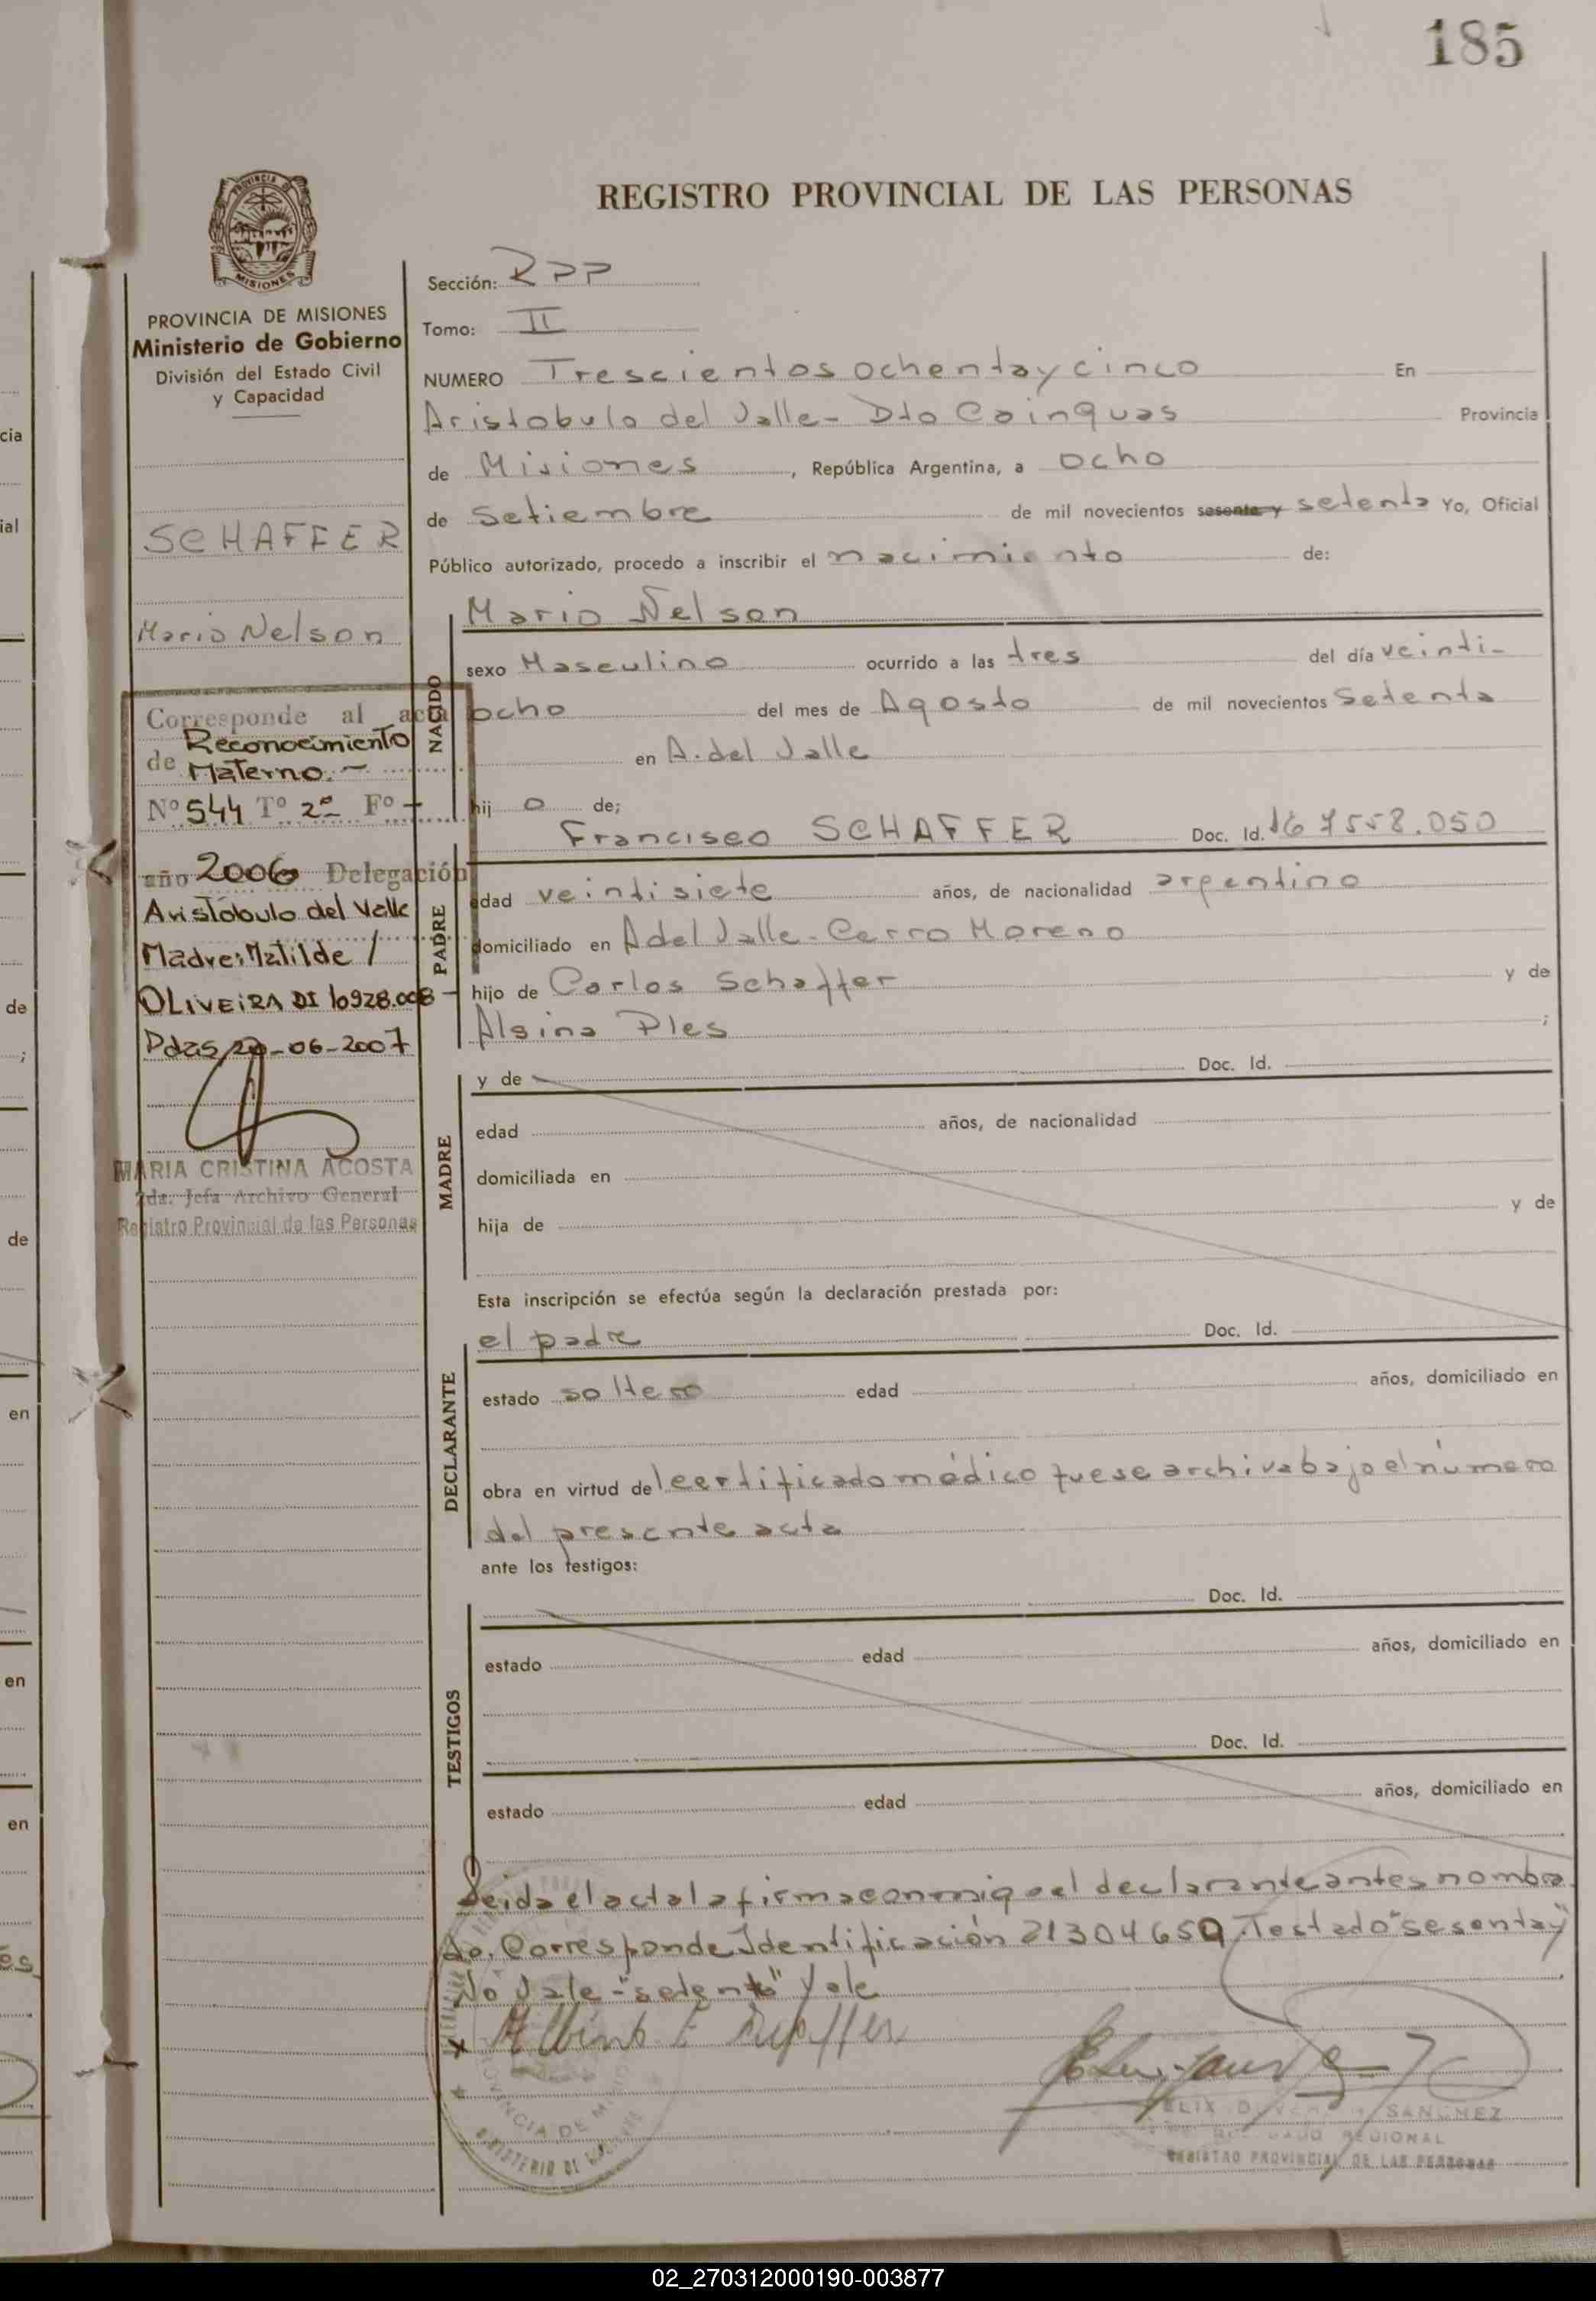 185
REGISTRO PROVINCIAL DE LAS PERSONAS
MISIONES
PROVINCIA DE MISIONES
Ministerio de Gobierno
División del Estado Civil
y Capacidad
SCHAFFER
Mario Nelson
Corresponde al acta
de Reconocimiento
Materno.-
Nº 544 Tº 2º Fº -
año 2006 Delegación
Aristóbulo del Valle
Madre: Matilde /
OLIVEiRA DI 10928.008 -
Pdas, 20-06-2007
MARIA CRISTINA ACOSTA
2da. Jefa Archivo General
Registro Provincial de las Personas
Sección: RPP
Tomo: II
NUMERO Trescientos ochenta y cinco En
Aristobulo del Valle - Dto Cainguas Provincia
de Misiones, República Argentina, a ocho
de Setiembre de mil novecientos sesenta y setenta Yo, Oficial
Público autorizado, procedo a inscribir el nacimiento de:
NACIDO
Mario Nelson
sexo Masculino ocurrido a las tres del día veinti-
ocho del mes de Agosto de mil novecientos Setenta
en A. del Valle
hij o de;
PADRE
Francisco SCHAFFER Doc. Id. 7558.050
edad veintisiete años, de nacionalidad argentino
domiciliado en A del Valle - Cerro Moreno
hijo de Carlos Schaffer y de
Ples ;
MADRE
y de Doc. Id.
edad años, de nacionalidad
domiciliada en
hija de y de
Esta inscripción se efectúa según la declaración prestada por:
DECLARANTE
el padre Doc. Id.
estado soltero edad años, domiciliado en
obra en virtud del certificado médico que se archiva bajo el número
del presente acta
ante los testigos:
TESTIGOS
Doc. Id.
estado edad años, domiciliado en
Doc. Id.
estado edad años, domiciliado en
Leida el acta la firma conmigo el declarante antes nombra
do. Corresponde Identificación 21304650. Testado "sesenta y"
No Vale - "setenta" Vale
SANCHEZ
REGIONAL
REGISTRO PROVINCIAL DE LAS PERSONAS
PROVINCIA DE MISIONES
MINISTERIO DE
cia
ial
de
;
de
en
en
en
es
02_270312000190-003877